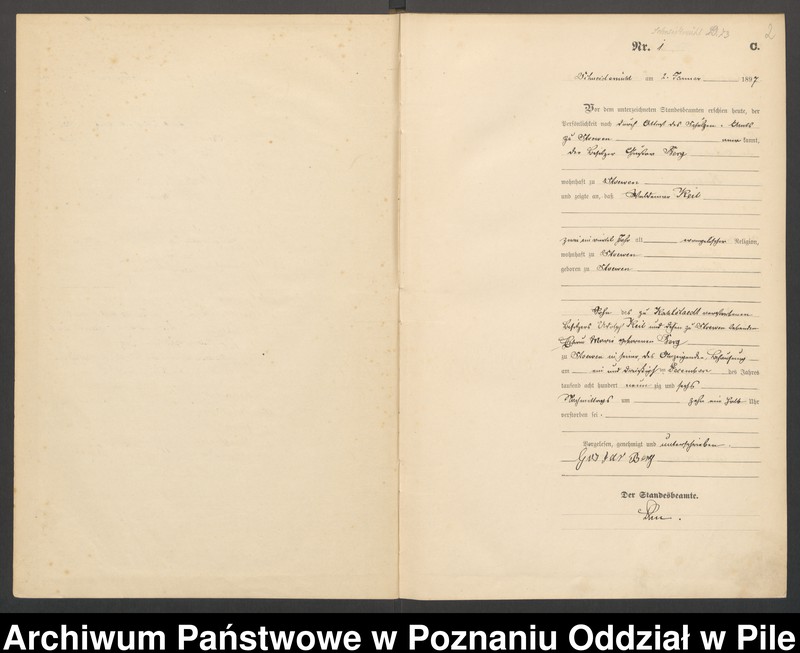 2
Nr. 1 C.
Schneidemühl am 2. Januar 1897
Vor dem unterzeichneten Standesbeamten erschien heute, der
Persönlichkeit nach durch Attest des Schulzen-Amts
zu Stoewen anerkannt,
der Besitzer Gustav Berg
wohnhaft zu Stoewen
und zeigte an, daß Waldemar Keil
zwei ein viertel Jahr alt evangelischer Religion,
wohnhaft zu Stoewen
geboren zu Stoewen
Sohn des zu verstorbenen
Besitzers Keil und dessen zu Stoewen lebenden
Ehefrau Marie geborenen Berg
zu Stoewen in seiner, des Anzeigenden, Behausung
am ein und dreißigsten Dezember des Jahres
tausend acht hundert neunzig und sechs
Nachmittags um zehn ein halb Uhr
verstorben sei.
Vorgelesen, genehmigt und unterschrieben.
Gustav Berg
Der Standesbeamte.
Archiwum Państwowe w Poznaniu Oddział w Pile